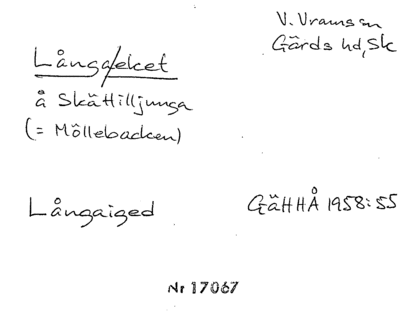 V. Vramssn
Gärds hd, Sk
Långa/eket
å Skättilljunga
(= Möllebacken)
Långaiged
GäHHÅ 1958:55
Nr 17067